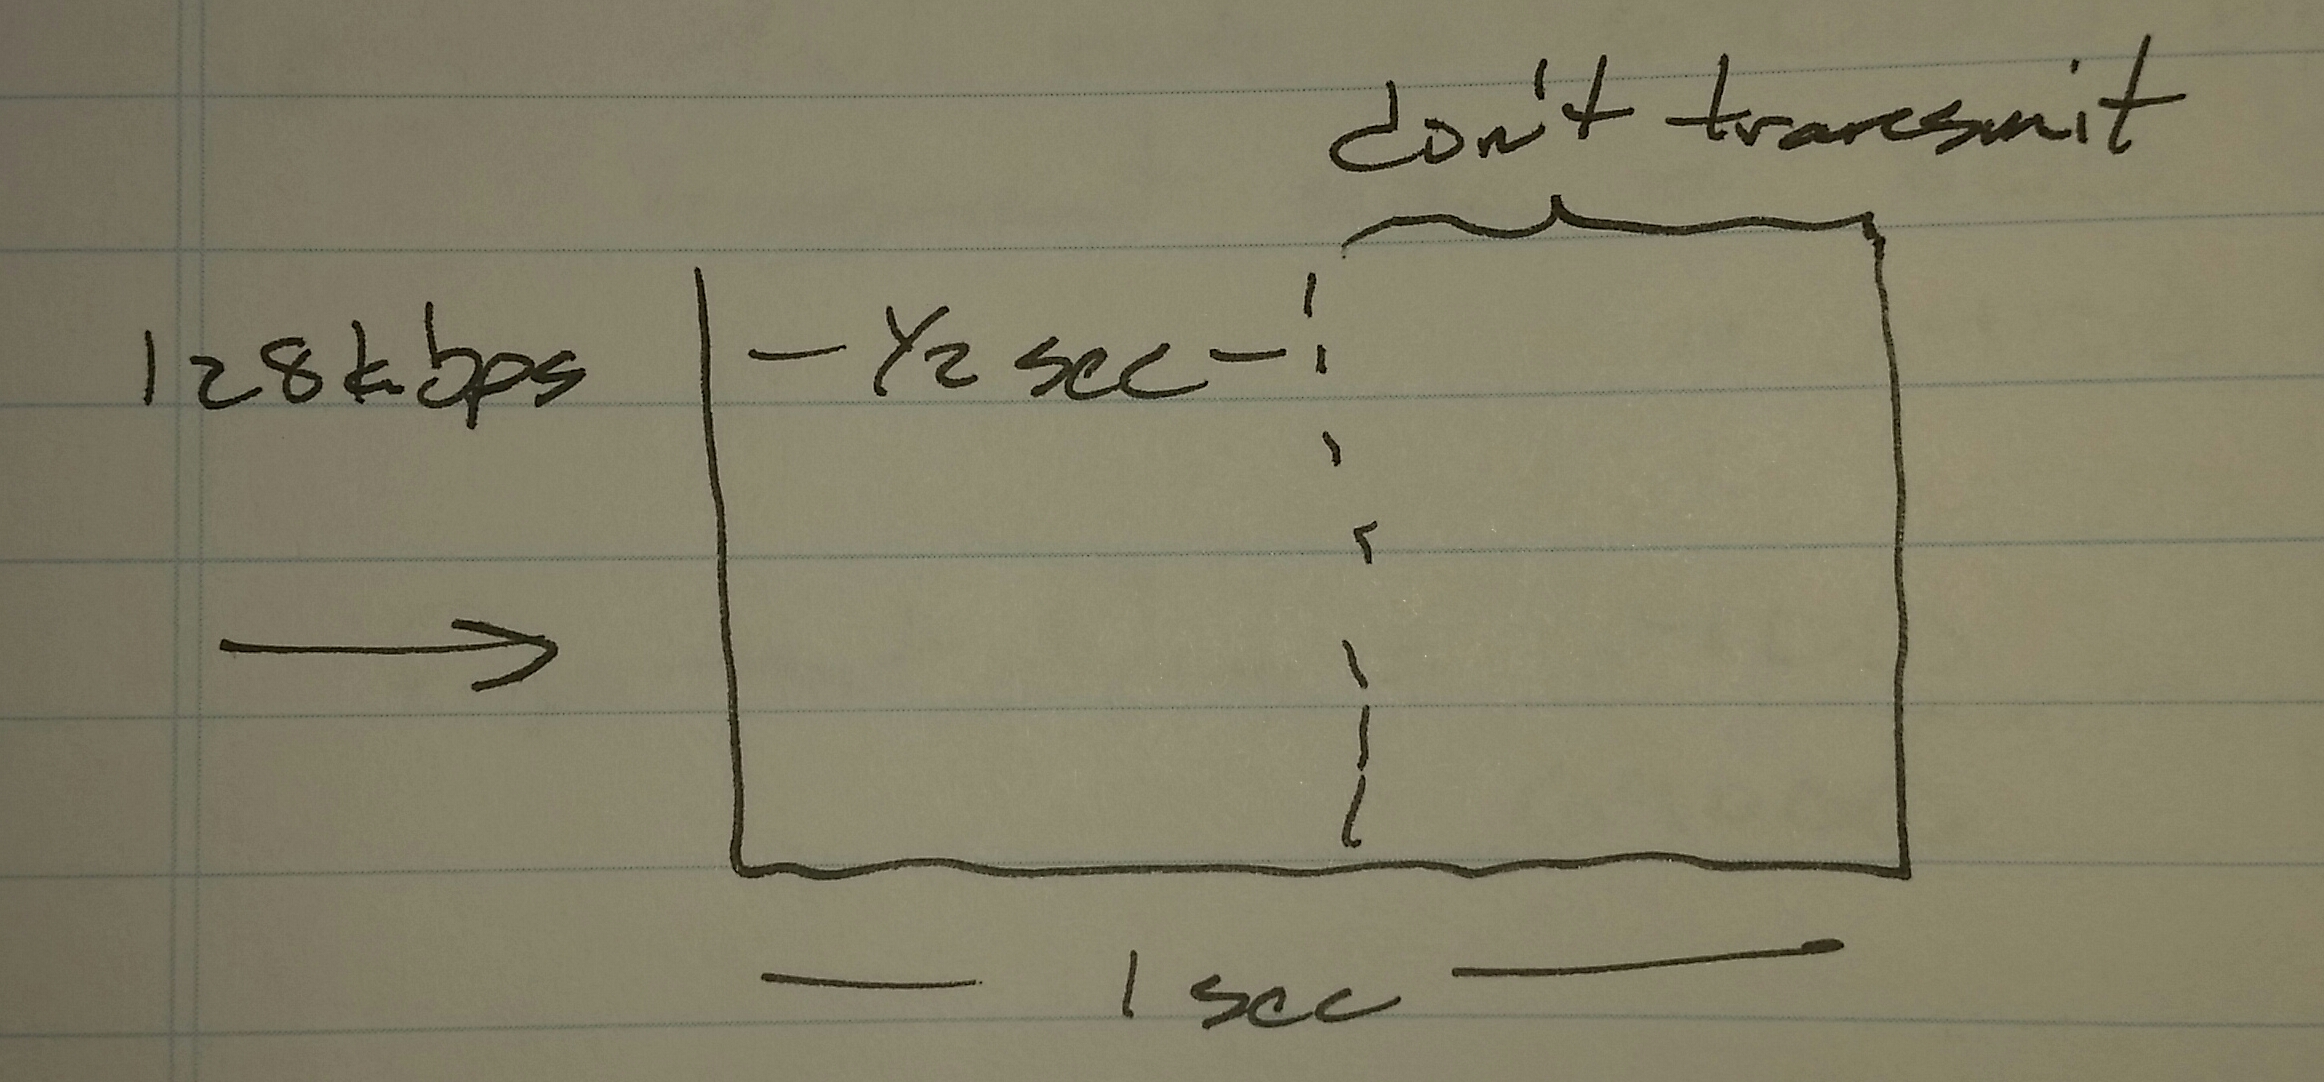 don't transmit
128kbps
- 1/2 sec -
1 sec